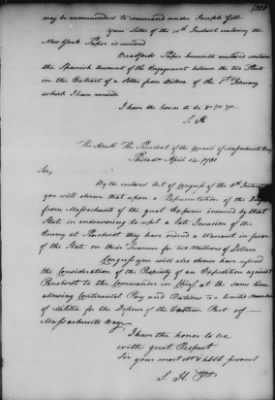 may be recommended to command under Joseph Gill
your Letter of the 10th Instant enclosing the
New York Paper is received
Bradfords Paper herewith enclosed contains
the Spanish Account of the Engagement between the two Fleets
in the Extract of a Letter from of the 8th February
which I have marked
I have the honor to be &c &c &c
S. H
The Honble The President of the Council of Massachusetts Bay
Philada April 14. 1781
Sir,
By the enclosed Act of Congress of the Instant
you will observe that upon a Representation of the
from Massachusetts of the great Expence incurred by that
State in endeavoring to repel a late Invasion of the
Enemy at Penobscott they have ordered a Warrant in favor
of the State on their Treasurer for two Millions of Dollars
Congress you will also observe have refered
the Consideration of the Propriety of an Expedition against
Penobscott to the Commander in Chief at the same time
allowing Continental Pay and Rations to a limited Number
of Militia for the Defence of the Eastern Part of
Massachusetts Bay.
I have the honor to be
with great Respect
Sir your most obt & hble servant
S. H. Prt